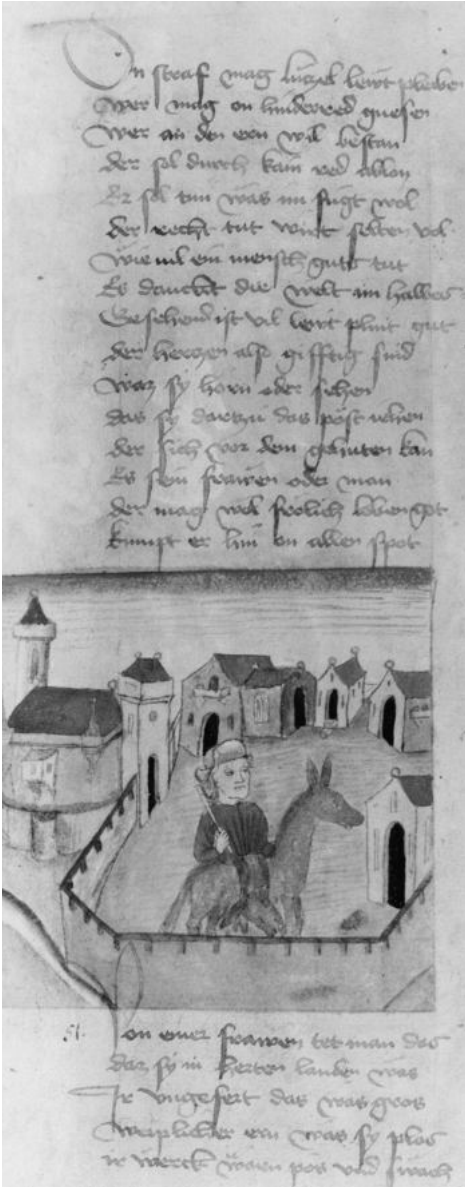 On straf mag lutzel lewt pleiben
Wer mag on hinderred gnesen
Wer an den ern wil bestan
der sol durch kain red allon
Er sol tun was im fugt wol
der recht tut wirt selten vol
Wie vil ein mensch guts tut
Es danckt die welt im halbes
Gesehend ist vil lewt plint gut
der herczen also gifftig sind
Waz sy horn oder sehen
das sy dartzu das post iehen
der sich vor dem gehuten kan
Es sein frawen oder man
der mag wol frolich loben got
kumpt er hin on allen spot
51. von einer frawen tet man das
daz sy in herten landen was
Ir vngefert das was gros
Weiplicher ern was sy plos
ir werck waren pos vnd swach